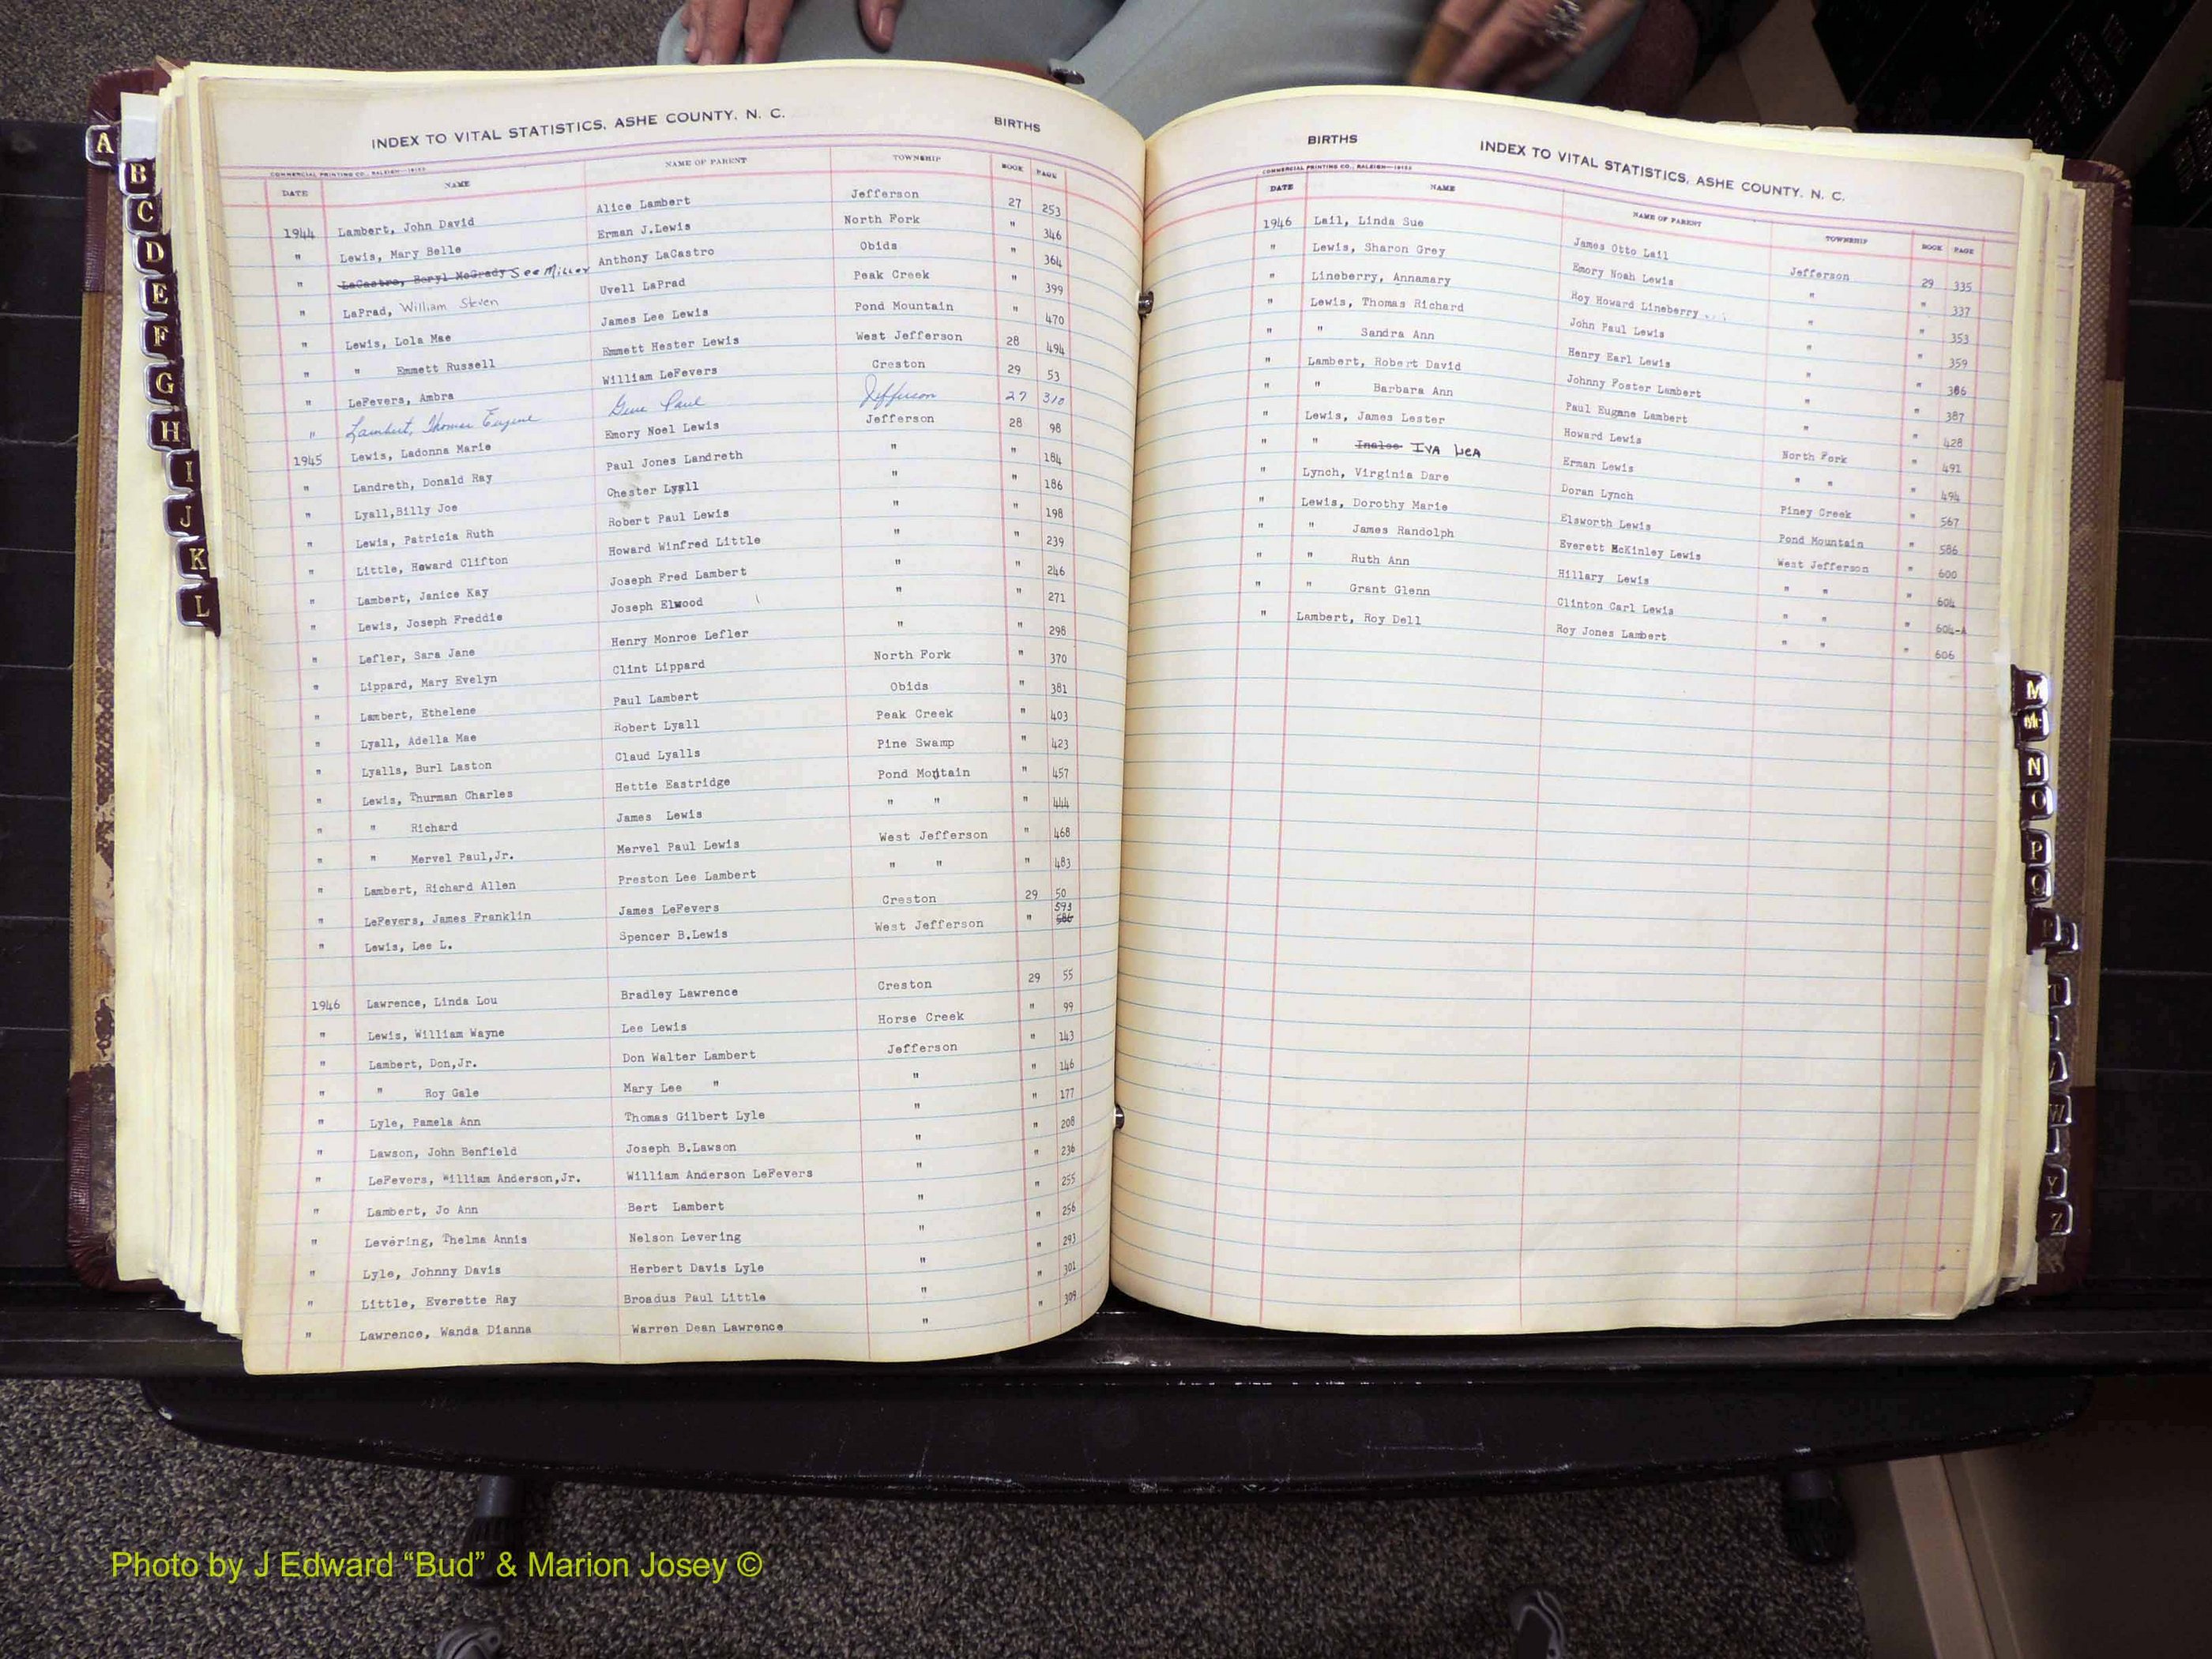 INDEX TO VITAL STATISTICS, ASHE COUNTY, N. C. BIRTHS
COMMERCIAL PRINTING CO., RALEIGH—
DATE NAME NAME OF PARENT TOWNSHIP BOOK PAGE
1944 Lambert, John David Alice Lambert Jefferson 27 253
" Lewis, Mary Belle Erman J.Lewis North Fork " 346
" LaCastro, Beryl McGrady See Miller Anthony LaCastro Obids " 364
" LaPrad, William Steven Uvell LaPrad Peak Creek " 399
" Lewis, Lola Mae James Lee Lewis Pond Mountain " 470
" " Emmett Russell Emmett Hester Lewis West Jefferson 28 494
" LeFevers, Ambra William LeFevers Creston 29 53
" Lambert, Thomas Eugene Gene Paul Jefferson 27 310
1945 Lewis, Ladonna Marie Emory Noel Lewis Jefferson 28 98
" Landreth, Donald Ray Paul Jones Landreth " " 184
" Lyall,Billy Joe Chester Lyall " " 186
" Lewis, Patricia Ruth Robert Paul Lewis " " 198
" Little, Howard Clifton Howard Winfred Little " " 239
" Lambert, Janice Kay Joseph Fred Lambert " " 246
" Lewis, Joseph Freddie Joseph Elwood " " 271
" Lefler, Sara Jane Henry Monroe Lefler " " 298
" Lippard, Mary Evelyn Clint Lippard North Fork " 370
" Lambert, Ethelene Paul Lambert Obids " 381
" Lyall, Adella Mae Robert Lyall Peak Creek " 403
" Lyalls, Burl Laston Claud Lyalls Pine Swamp " 423
" Lewis, Thurman Charles Hettie Eastridge Pond Montain " 457
" " Richard James Lewis " " " 444
" " Mervel Paul,Jr. Mervel Paul Lewis West Jefferson " 468
" Lambert, Richard Allen Preston Lee Lambert " " " 483
" LeFevers, James Franklin James LeFevers Creston 29 50
" Lewis, Lee L. Spencer B.Lewis West Jefferson " 593 586
1946 Lawrence, Linda Lou Bradley Lawrence Creston 29 55
" Lewis, William Wayne Lee Lewis Horse Creek " 99
" Lambert, Don,Jr. Don Walter Lambert Jefferson " 143
" " Roy Gale Mary Lee " " " 146
" Lyle, Pamela Ann Thomas Gilbert Lyle " " 177
" Lawson, John Benfield Joseph B.Lawson " " 208
" LeFevers, William Anderson,Jr. William Anderson LeFevers " " 236
" Lambert, Jo Ann Bert Lambert " " 255
" Levering, Thelma Annis Nelson Levering " " 256
" Lyle, Johnny Davis Herbert Davis Lyle " " 293
" Little, Everette Ray Broadus Paul Little " " 301
" Lawrence, Wanda Dianna Warren Dean Lawrence " " 309
BIRTHS INDEX TO VITAL STATISTICS, ASHE COUNTY, N. C.
COMMERCIAL PRINTING CO., RALEIGH—
DATE NAME NAME OF PARENT TOWNSHIP BOOK PAGE
1946 Lail, Linda Sue James Otto Lail Jefferson 29 335
" Lewis, Sharon Grey Emory Noah Lewis " " 337
" Lineberry, Annamary Roy Howard Lineberry " " 353
" Lewis, Thomas Richard John Paul Lewis " " 359
" " Sandra Ann Henry Earl Lewis " " 386
" Lambert, Robert David Johnny Foster Lambert " " 387
" " Barbara Ann Paul Eugane Lambert " " 428
" Lewis, James Lester Howard Lewis North Fork " 491
" " IVA LEA Erman Lewis " " " 494
" Lynch, Virginia Dare Doran Lynch Piney Creek " 567
" Lewis, Dorothy Marie Elsworth Lewis Pond Mountain " 586
" " James Randolph Everett McKinley Lewis West Jefferson " 600
" " Ruth Ann Hillary Lewis " " " 604
" " Grant Glenn Clinton Carl Lewis " " " 604-A
" Lambert, Roy Dell Roy Jones Lambert " " " 606
A
B
C
D
E
F
G
H
I
J
K
L
M
Mc
N
O
P
Q
R
T
W
Y
Z
Photo by J Edward “Bud” & Marion Josey ©